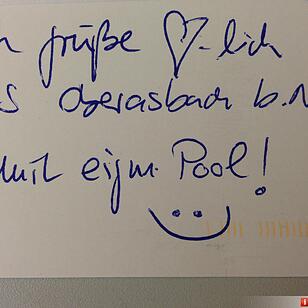 grüße ♡-lich
Oberasbach b.N
mit eigm. Pool!